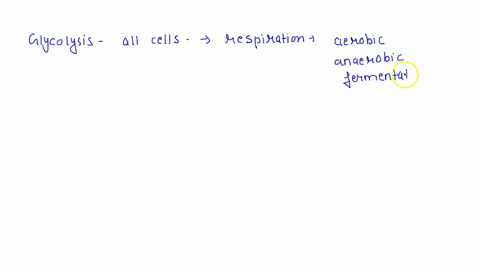 Glycolysis - all cells - → respiration → aerobic
anaerobic
fermentat